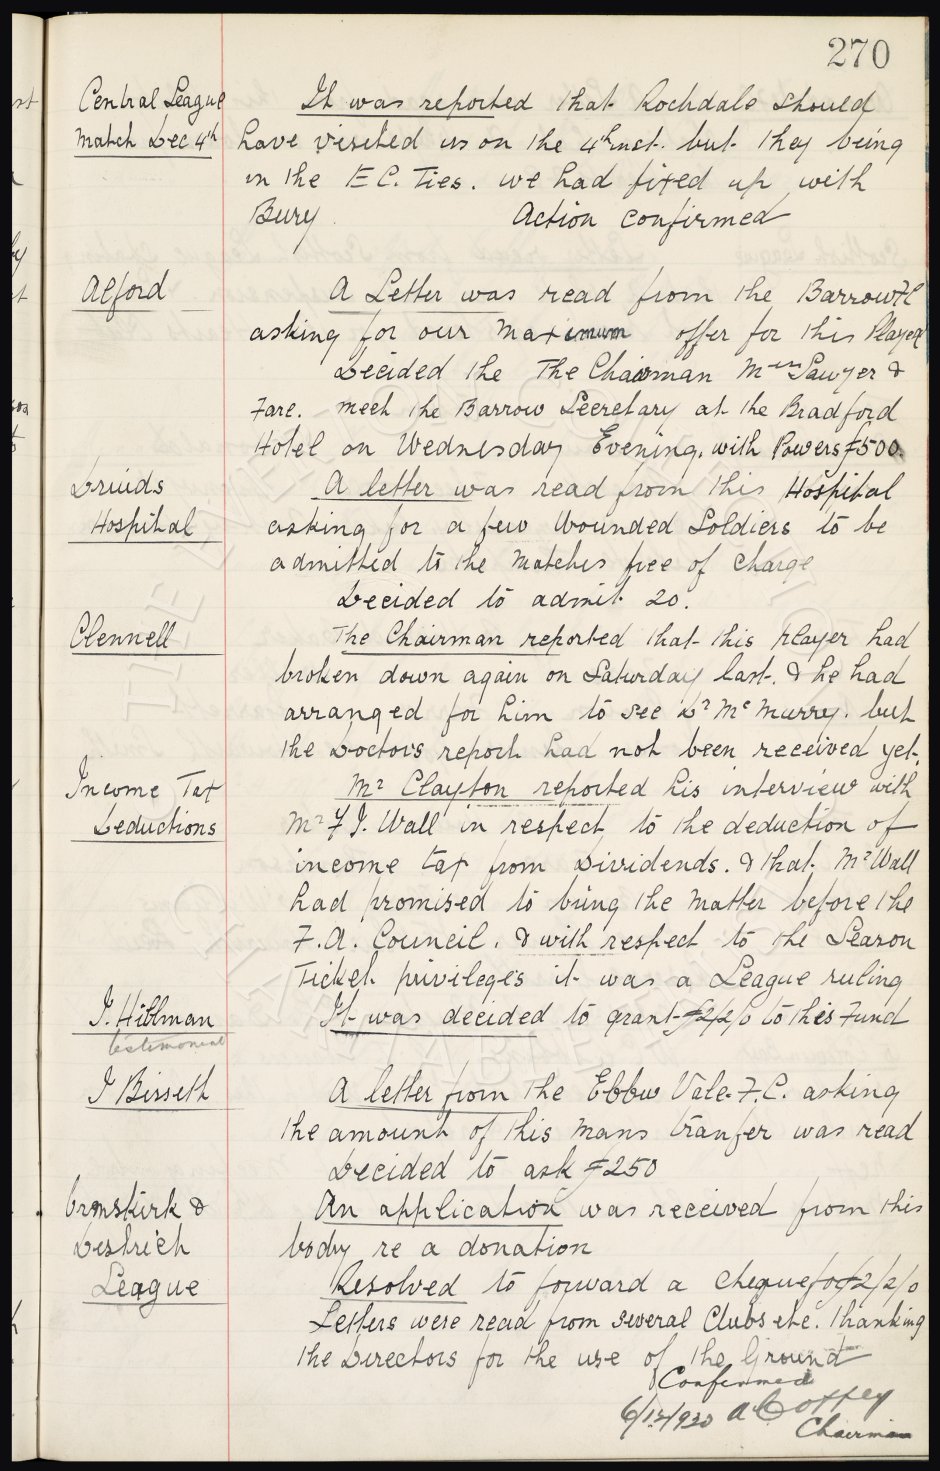 270
Central League
Match Dec 4th
It was reported that Rochdale should
have visited us on the 4th inst. but they being
in the E C. Ties. we had fixed up with
Bury. Action confirmed
Alford
A Letter was read from the Barrow F C
asking for our Maximum offer for this Player
Decided the The Chairman Mess Sawyer &
Fare. meet the Barrow Secretary at the Bradford
Hotel on Wednesday Evening. with Powers £500.
Druids
Hospital
A letter was read from this Hospital
asking for a few Wounded Soldiers to be
admitted to the Matches free of charge
Decided to admit 20.
Clennell
The Chairman reported that this player had
broken down again on Saturday last. & he had
arranged for him to see Dr McMurry. but
the Doctors report had not been received yet.
Income Tax
Deductions
Mr Clayton reported his interview with
Mr F J. Wall in respect to the deduction of
income tax from Dividends. & that Mr Wall
had promised to bring the matter before the
F.A. Council. & with respect to the Season
Ticket privileges it was a League ruling
J. Hiblman
testimonial
It was decided to grant £2/2/0 to this Fund
J Bisseth
A letter from the Ebbw Vale. F.C. asking
the amount of this mans tranfer was read
Decided to ask £250
Ormskirk &
Destrich
League
An application was received from this
body re a donation
Resolved to forward a cheque for £2/2/0
Letters were read from several Clubs etc. thanking
the Directors for the use of the Ground
Confirmed
6/12/1920 A Coffey
Chairman